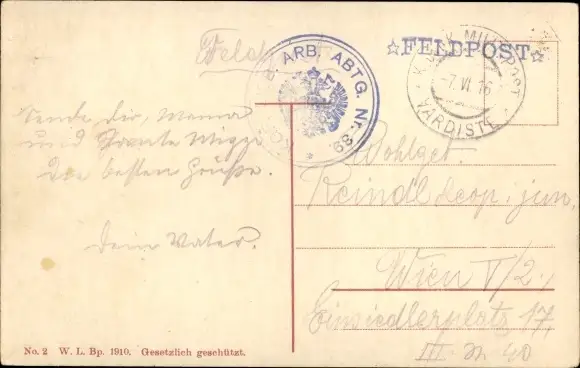 Feldpost
☆FELDPOST☆
ARB. ABTG. Nr. 89
K.u.K. MILIT. POST
-7.VI.16
VARDISTE
Sende dir, Mama
und Tante Mizze
die besten Grüße.
Dein Vater.
Wohlgeb.
Reindl Leop. jun.
Wien V/2.
Einsiedlerplatz 17,
III. N. 40
No. 2 W. L. Bp. 1910. Gesetzlich geschützt.